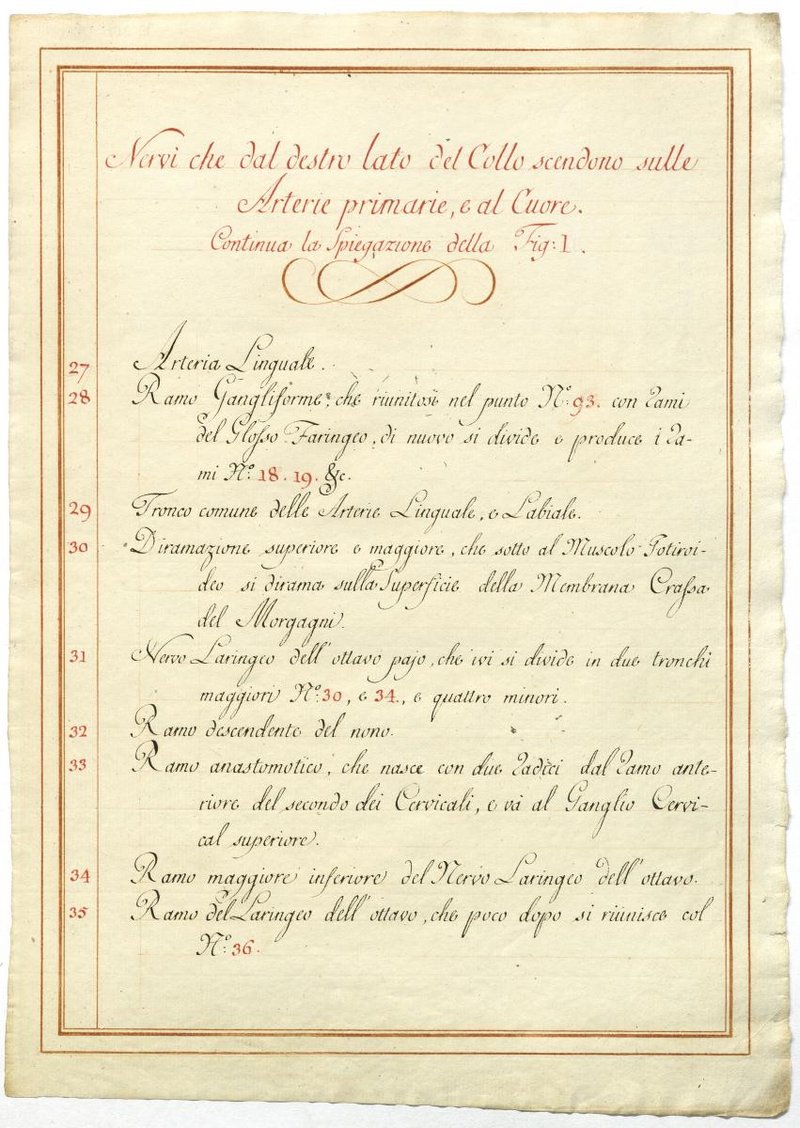 Nervi che dal destro lato del Collo scendono sulle
Arterie primarie, e al Cuore.
Continua la Spiegazione della Fig: I.
27 Arteria Linguale.
28 Ramo Gangliforme, che riunitosi nel punto N.º 93. con rami
del Glosso Faringeo, di nuovo si divide e produce i ra-
mi N.º 18. 19. &c.
29 Tronco comune delle Arterie Linguale, e Labiale.
30 Diramazione superiore e maggiore, che sotto al Muscolo Jotiroi-
deo si dirama sulla Superficie della Membrana Crassa
del Morgagni.
31 Nervo Laringeo dell' ottavo pajo, che ivi si divide in due tronchi
maggiori N.º 30, e 34., e quattro minori.
32 Ramo descendente del nono.
33 Ramo anastomotico, che nasce con due radici dal ramo ante-
riore del secondo dei Cervicali, e và al Ganglio Cervi-
cal superiore.
34 Ramo maggiore inferiore del Nervo Laringeo dell' ottavo.
35 Ramo del Laringeo dell' ottavo, che poco dopo si riunisce col
N.º 36.